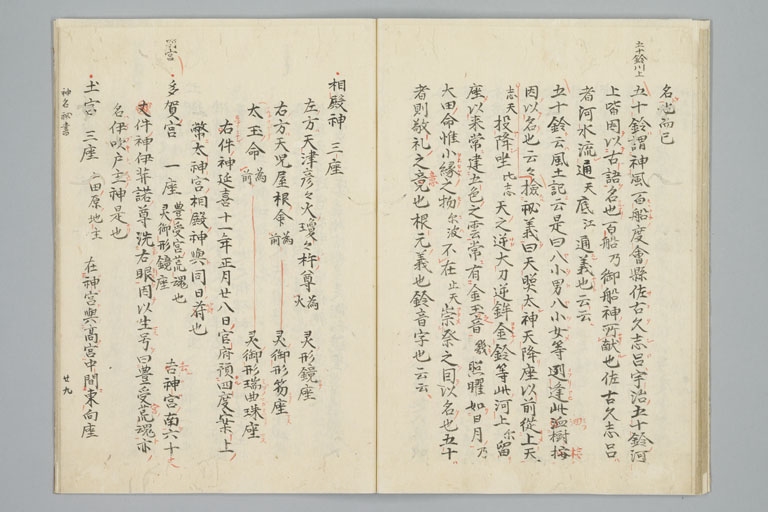 五十鈴川上
名也而已
五十鈴謂神風百船度會縣佐古久志呂宇治五十鈴河
上皆因以古語名也百船乃御船神所献也佐古久志呂
者河水流通天底江通義也云云
五十鈴云風土記云是曰八小男八小女等逢此樹
因以名也云々檢秘義曰天照太神天降座以前從上天
志天投降坐比志天之逆大刀逆鉾金鈴等此河上尓留
座以来常建五色之雲常有金玉音幾照曜如日月乃
大田命惟小縁之物尓波不在止天崇祭之因以名也五十
者則敬礼之竟也根元義也鈴音字也云云
相殿神三座
左方天津彦々火瓊々杵尊為火 灵形鏡座
右方天児屋根命為前 灵御形笏座
太玉命為前 灵御形瑞曲珠座
右件神延喜十一年正月廿八日官府預四度案上
幣太神宮相殿神與同日府也
多賀宮一座 豊受宮荒魂也 灵御形鏡座 去神宮南六十丈
件神伊弉諾尊洗右眼因以生号曰豊受荒魂亦
名伊吹戸主神是也
土宮三座 山田原地主 在神宮與高宮中間東向座
神名秘書
廿九